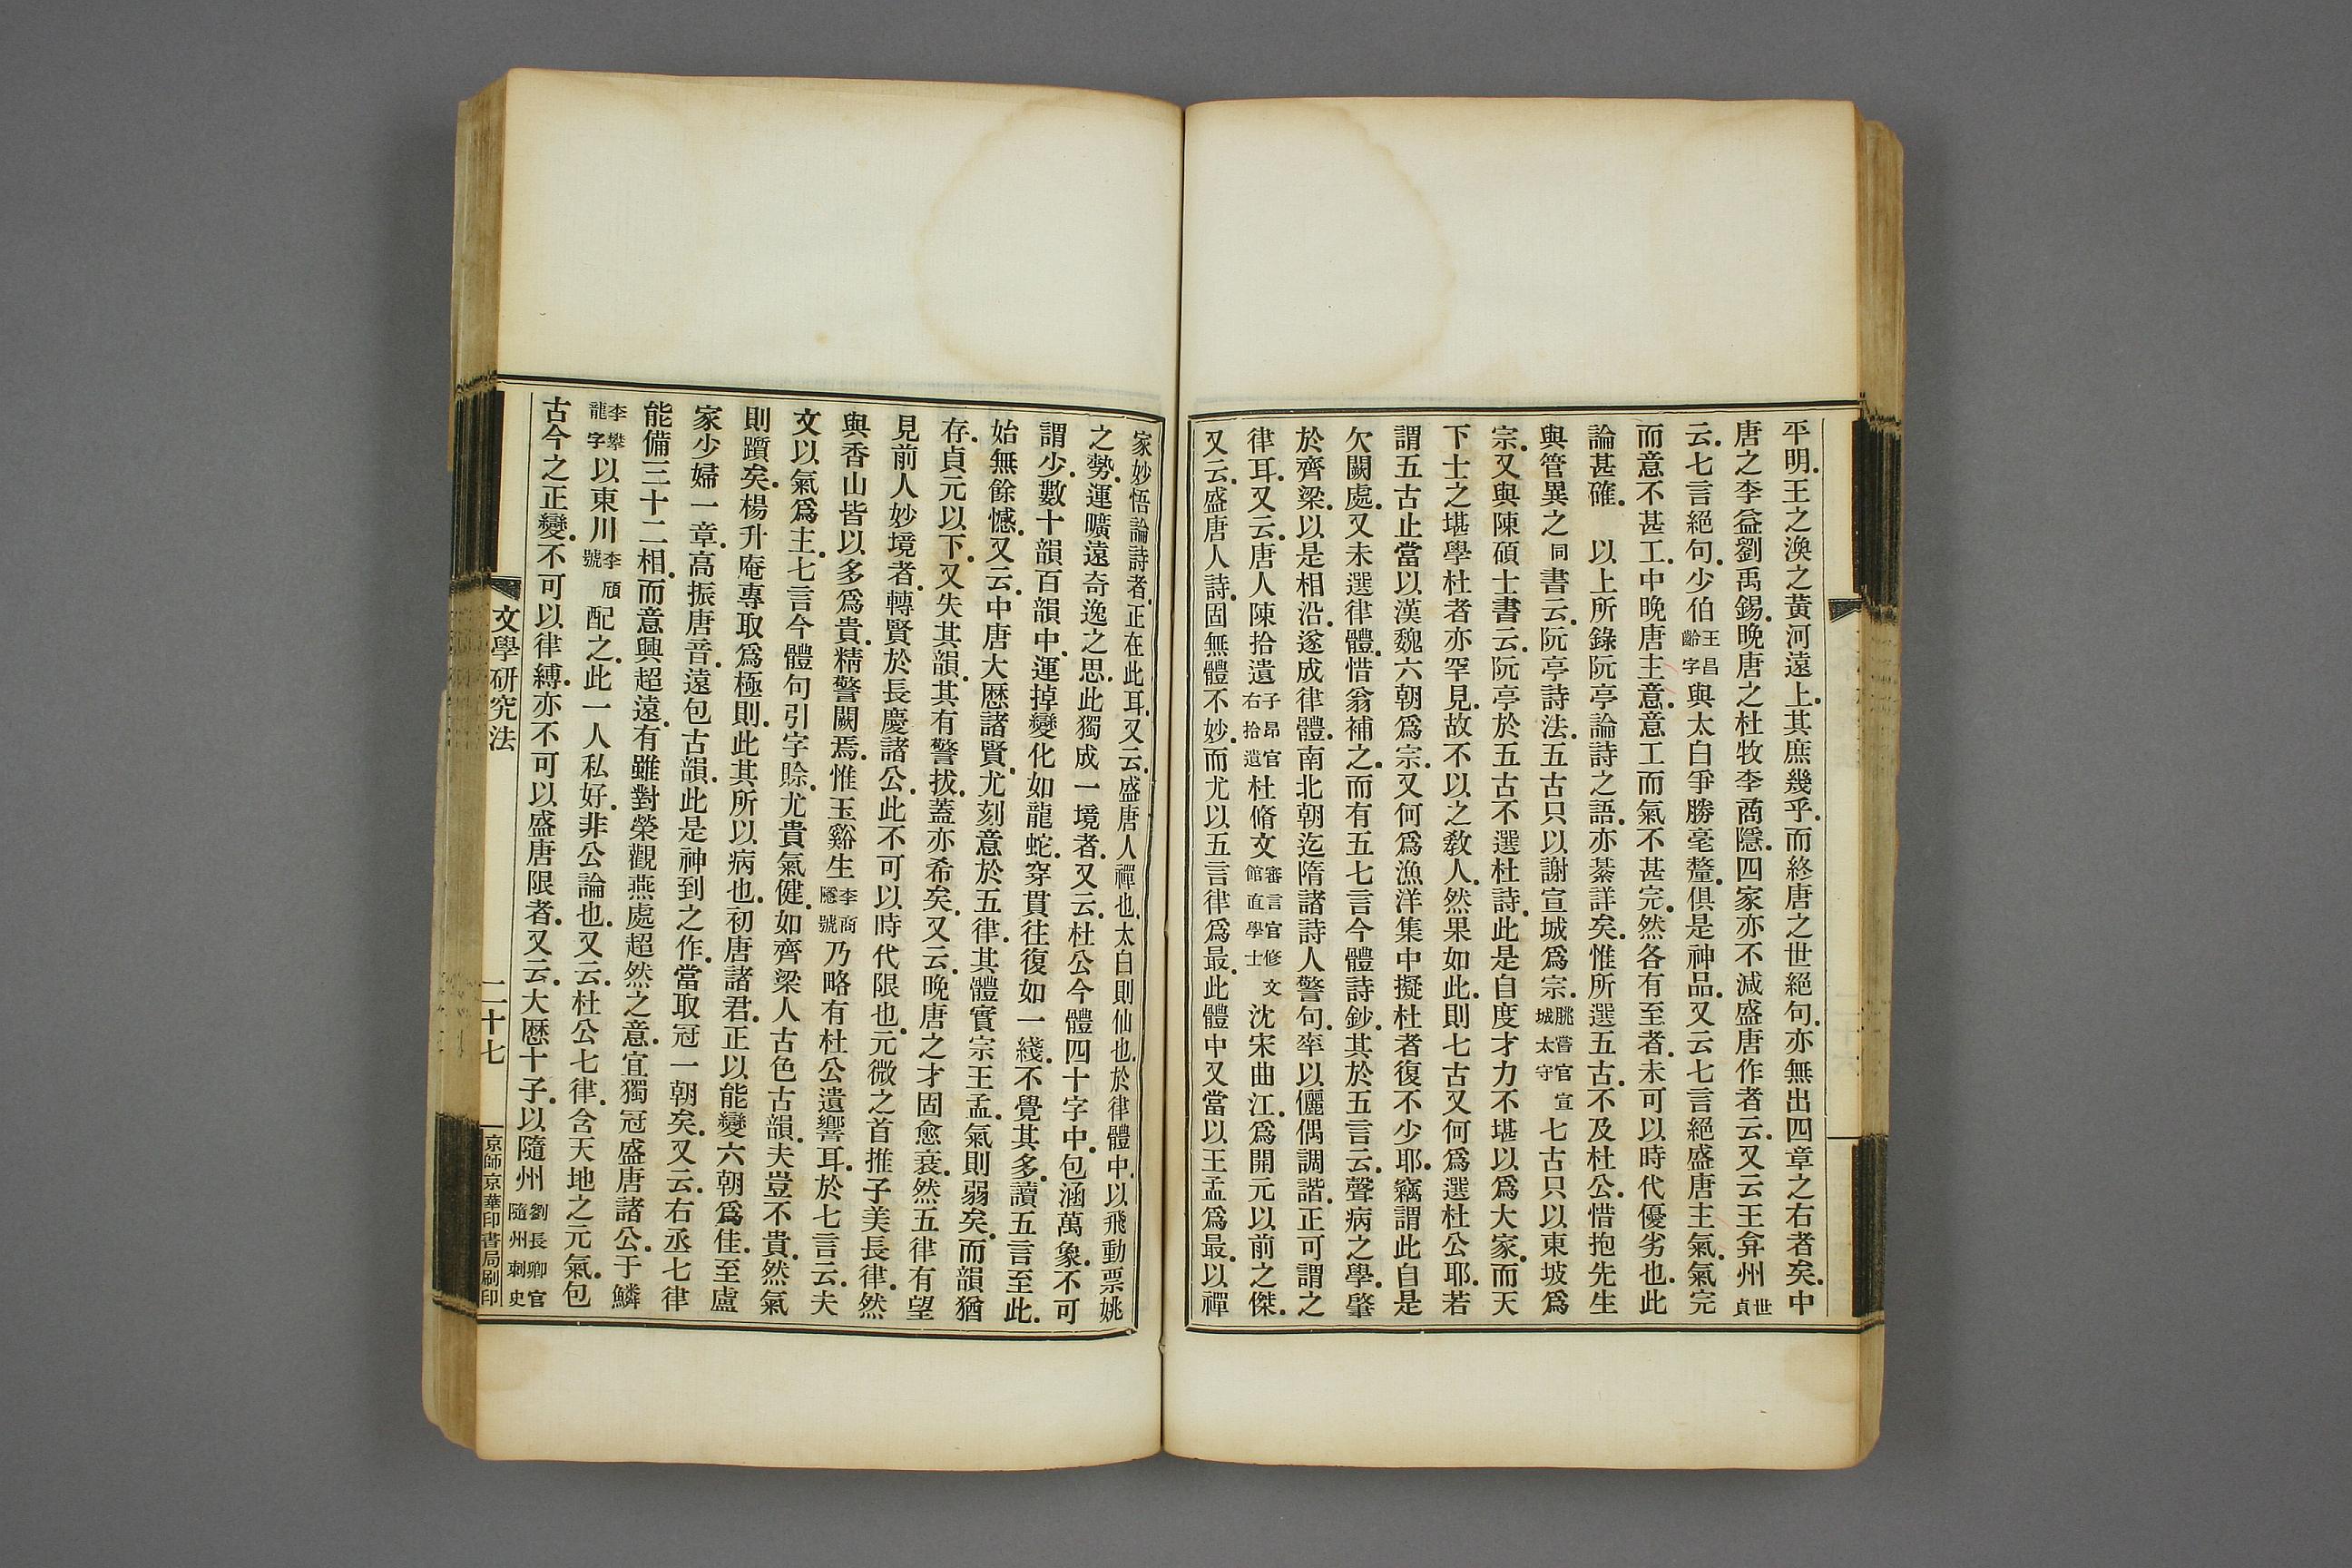 平明.王之渙之黃河遠上.其庶幾乎.而終唐之世絕句.亦無出四章之右者矣.中
唐之李益劉禹錫.晚唐之杜牧李商隱.四家亦不減盛唐作者云.又云王弇州世貞
云.七言絕句.少伯王昌齡字與太白爭勝毫釐.俱是神品.又云七言絕盛唐主氣.氣完
而意不甚工.中晚唐主意.意工而氣不甚完.然各有至者.未可以時代優劣也.此
論甚確.　以上所錄阮亭論詩之語.亦綦詳矣.惟所選五古.不及杜公.惜抱先生
與管異之同書云.阮亭詩法.五古只以謝宣城爲宗.朓嘗官宣城太守七古只以東坡爲
宗.又與陳碩士書云.阮亭於五古不選杜詩.此是自度才力不堪以爲大家.而天
下士之堪學杜者亦罕見.故不以之敎人.然果如此.則七古又何爲選杜公耶.若
謂五古止當以漢魏六朝爲宗.又何爲漁洋集中擬杜者復不少耶.竊謂此自是
欠闕處.又未選律體.惜翁補之.而有五七言今體詩鈔.其於五言云.聲病之學.肇
於齊梁.以是相沿.遂成律體.南北朝迄隋諸詩人警句.率以儷偶調諧.正可謂之
律耳.又云.唐人陳拾遺子昂官右拾遺杜脩文審言官修文館直學士沈宋曲江.爲開元以前之傑.
又云.盛唐人詩.固無體不妙.而尤以五言律爲最.此體中又當以王孟爲最.以禪
家妙悟論詩者.正在此耳.又云.盛唐人禪也.太白則仙也.於律體中.以飛動票姚
之勢.運曠遠奇逸之思.此獨成一境者.又云.杜公今體四十字中.包涵萬象.不可
謂少.數十韻百韻中.運掉變化如龍蛇.穿貫往復如一綫.不覺其多.讀五言至此.
始無餘憾.又云.中唐大曆諸賢.尤刻意於五律.其體實宗王孟.氣則弱矣.而韻猶
存.貞元以下.又失其韻.其有警拔.蓋亦希矣.又云.晚唐之才固愈衰.然五律有望
見前人妙境者.轉賢於長慶諸公.此不可以時代限也.元微之首推子美長律.然
與香山皆以多爲貴.精警闕焉.惟玉谿生李商隱號乃略有杜公遺響耳.於七言云.夫
文以氣爲主.七言今體句引字賒.尤貴氣健.如齊梁人古色古韻.夫豈不貴.然氣
則躓矣.楊升庵專取爲極則.此其所以病也.初唐諸君.正以能變六朝爲佳.至盧
家少婦一章.高振唐音.遠包古韻.此是神到之作.當取冠一朝矣.又云.右丞七律
能備三十二相.而意興超遠.有雖對榮觀燕處超然之意.宜獨冠盛唐諸公.于鱗
李攀龍字以東川李頎號配之.此一人私好.非公論也.又云.杜公七律.含天地之元氣.包
古今之正變.不可以律縛.亦不可以盛唐限者.又云.大曆十子.以隨州劉長卿官隨州刺史
文學研究法
二十七
京師京華印書局刷印